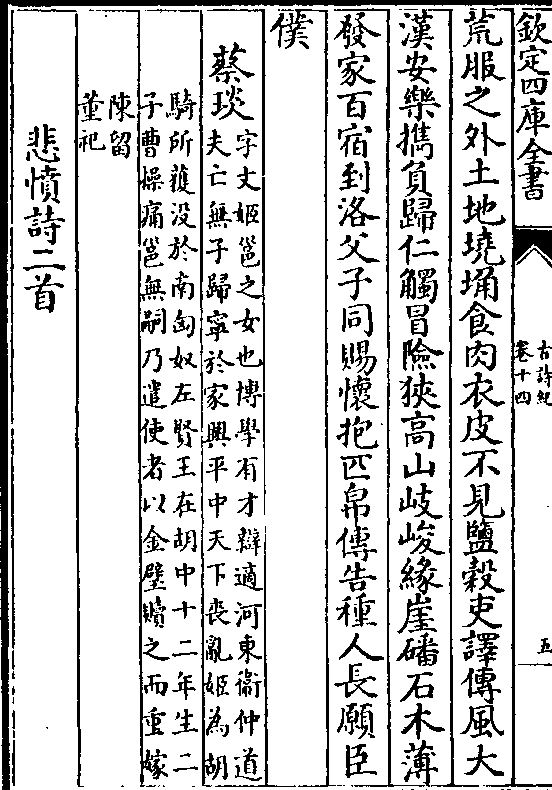 欽定四庫全書
古詩紀
卷十四
五
荒服之外土地墝埆食肉衣皮不見鹽穀吏譯傳風大
漢安樂攜負歸仁觸冒險狹高山岐峻緣崖磻石木薄
發家百宿到洛父子同賜懷抱匹帛傳告種人長願臣
僕
蔡琰
字文姬邕之女也博學有才辯適河東衞仲道
夫亡無子歸寧於家興平中天下喪亂姬為胡
騎所獲没於南匈奴左賢王在胡中十二年生二
子曹操痛邕無嗣乃遣使者以金璧贖之而重嫁
陳留
董祀
悲憤詩二首